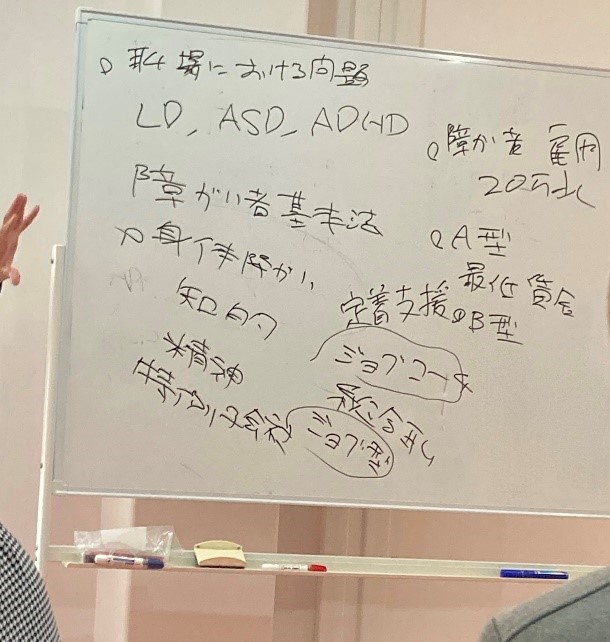 職場における問題
LD, ASD, ADHD
障がい者基本法
身体障がい
知的
精神
特例子会社
障がい者雇用
20万此
A型
最低賃金
定着支援 B型
ジョブコーチ
ジョブ型